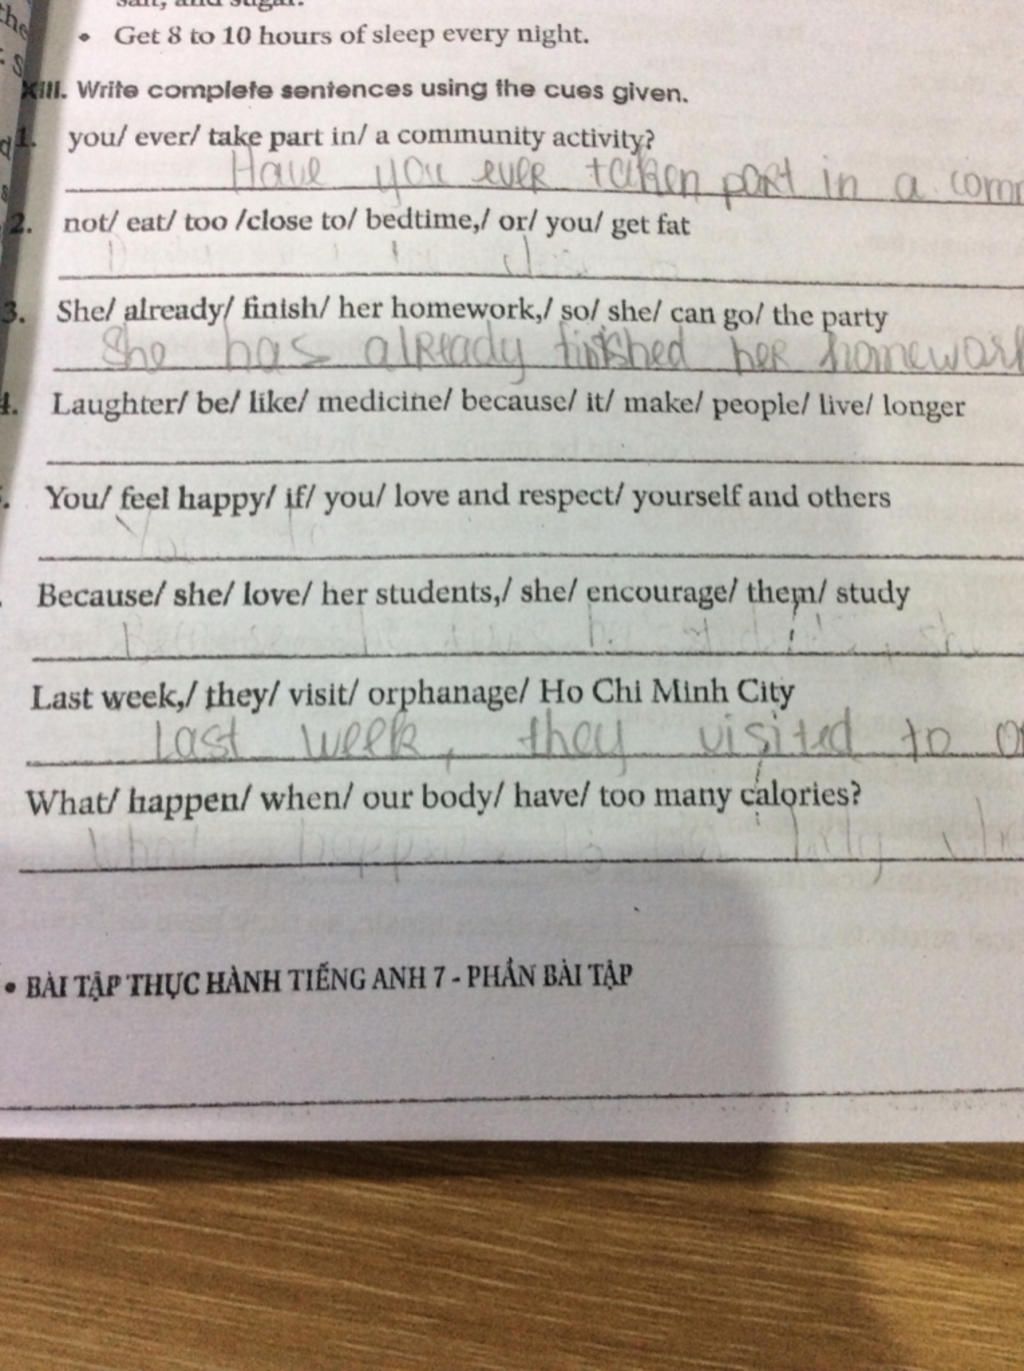 salt, and sugar.
• Get 8 to 10 hours of sleep every night.
XIII. Write complete sentences using the cues given.
1. you/ ever/ take part in/ a community activity?
Have you ever taken part in a comm
2. not/ eat/ too /close to/ bedtime,/ or/ you/ get fat
3. She/ already/ finish/ her homework,/ so/ she/ can go/ the party
She has already finished her homework
4. Laughter/ be/ like/ medicine/ because/ it/ make/ people/ live/ longer
You/ feel happy/ if/ you/ love and respect/ yourself and others
Because/ she/ love/ her students,/ she/ encourage/ them/ study
Last week,/ they/ visit/ orphanage/ Ho Chi Minh City
Last week, they visited to
What/ happen/ when/ our body/ have/ too many calories?
What happen
• BÀI TẬP THỰC HÀNH TIẾNG ANH 7 - PHẦN BÀI TẬP